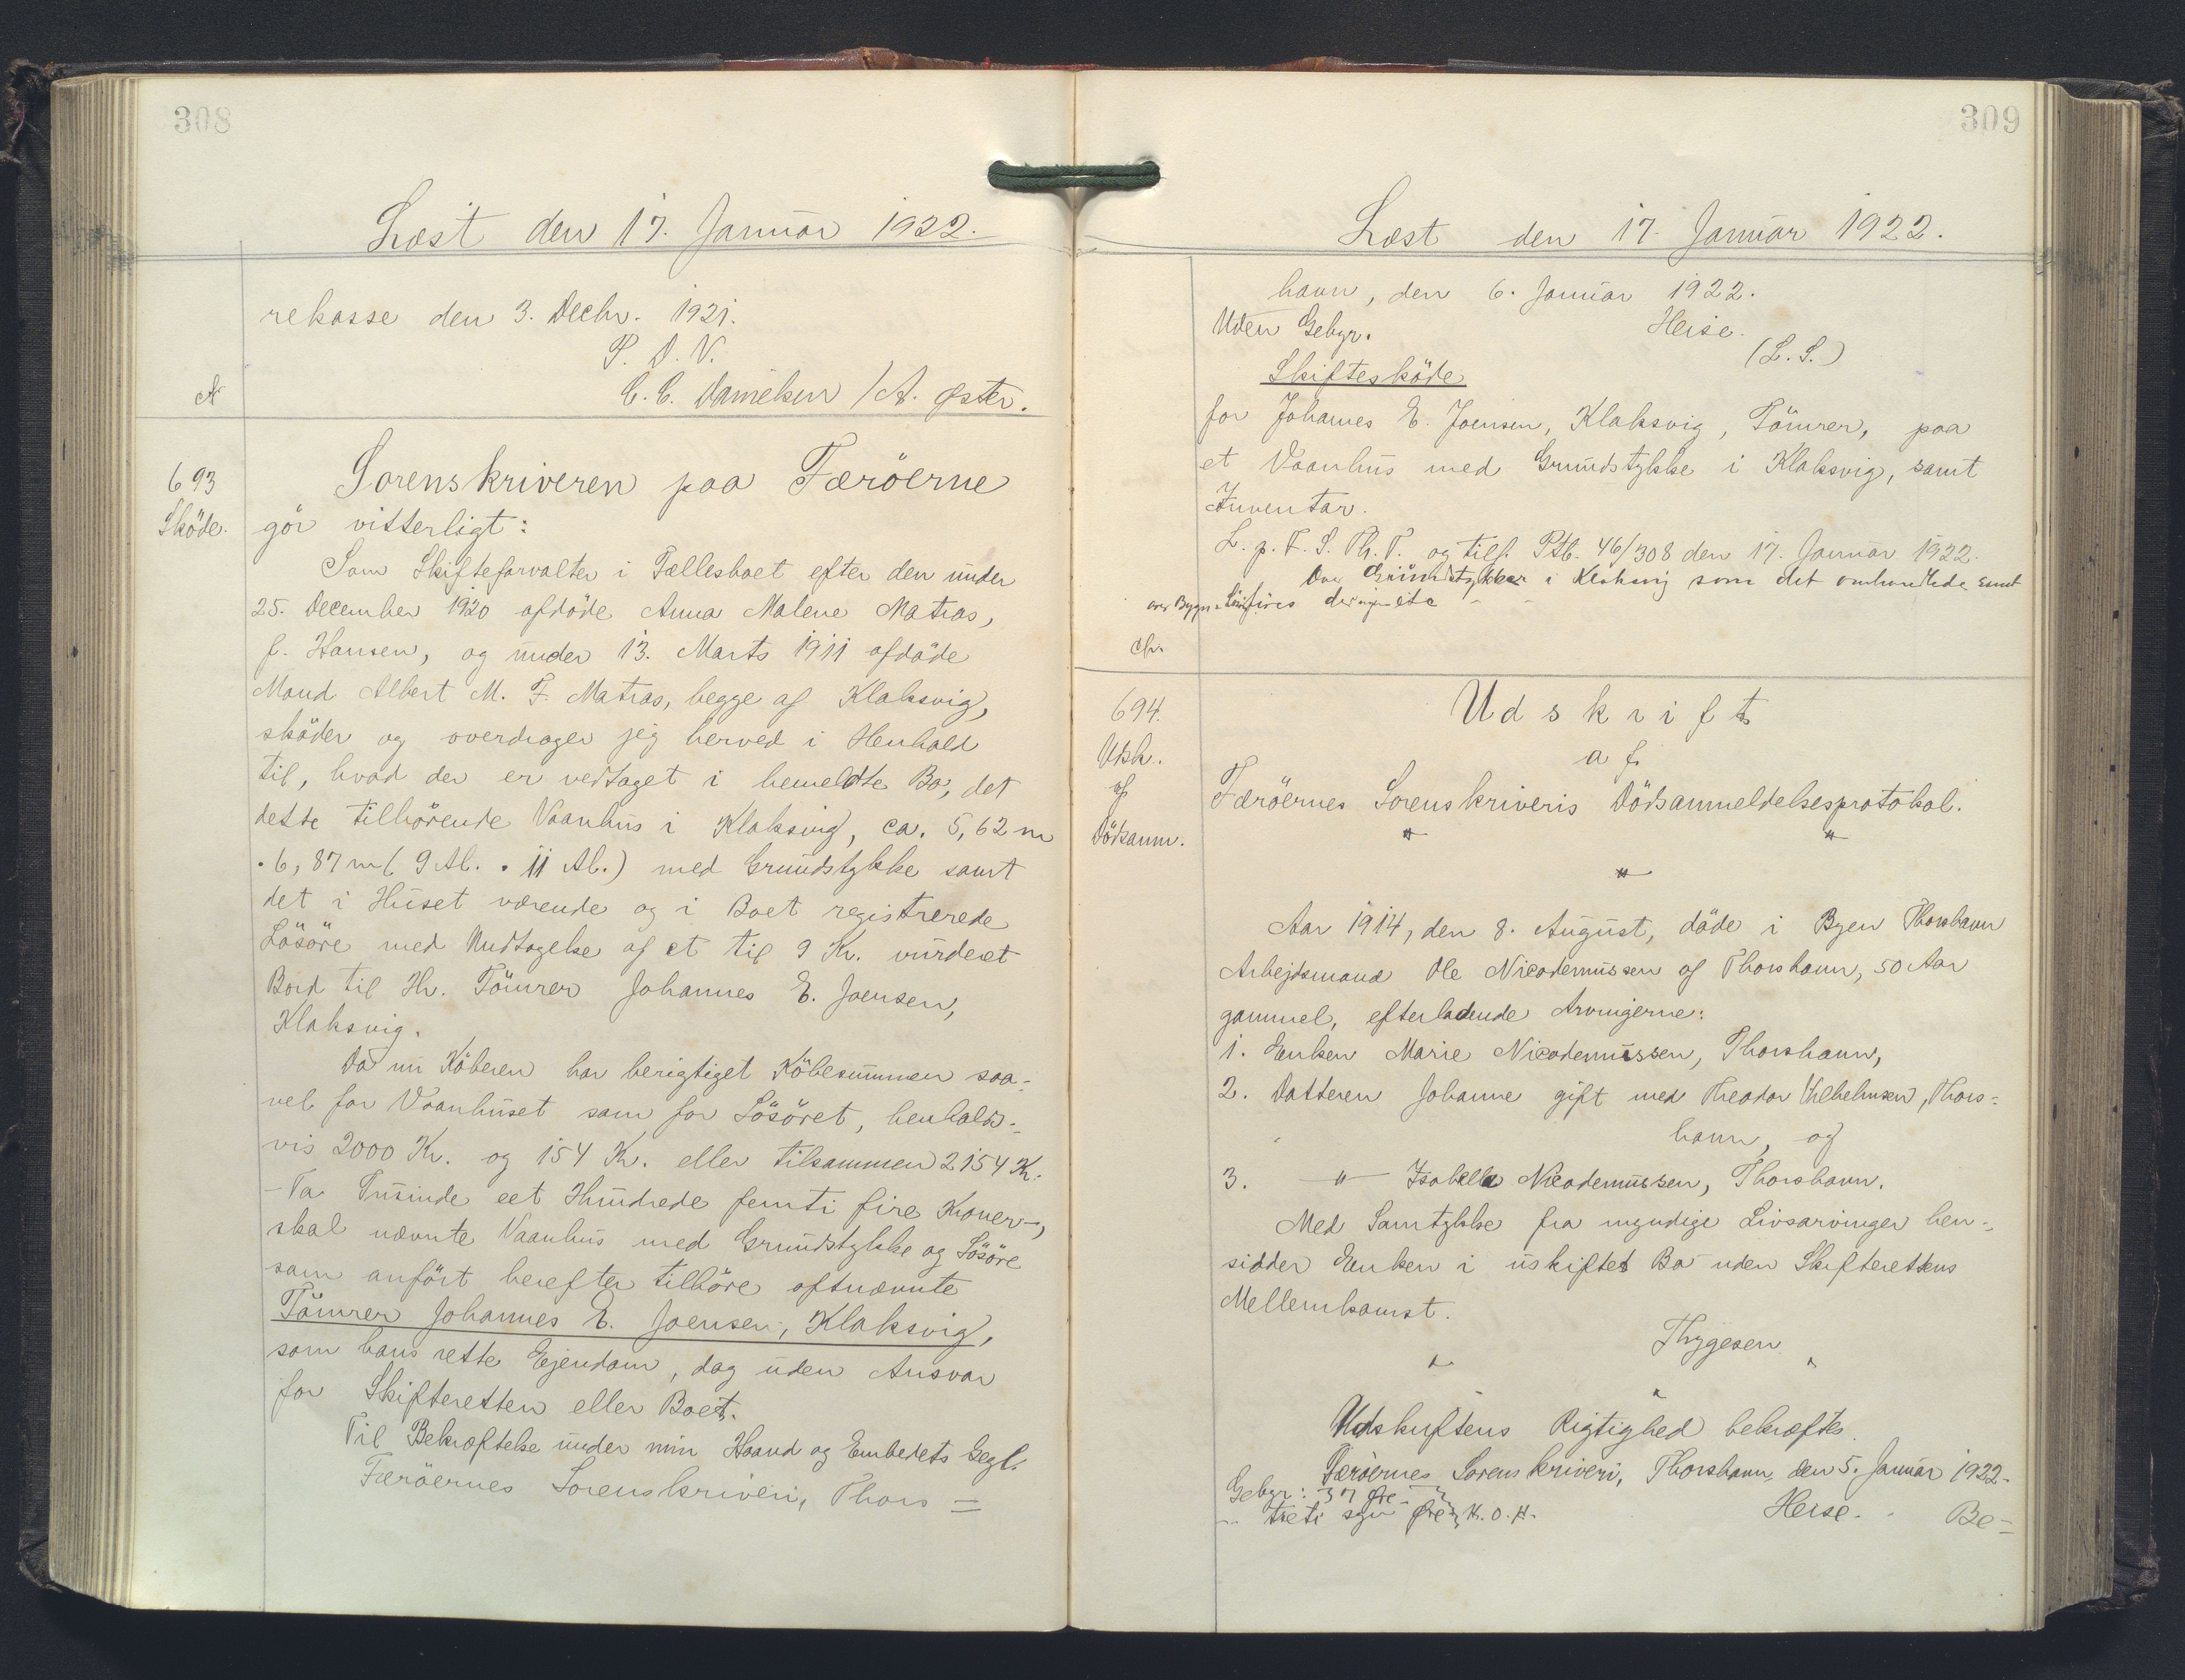 308
Læst den 17. Januar 1922.
rekasse den 3. Decbr. 1921.
P. D. V.
C. C. Danielsen / A. Øster.
693
Sköde.
Sorenskriveren paa Færöerne
gör vitterligt:
Som Skifteforvalter i Fællesboet efter den under
25. December 1920 afdöde Anna Malene Matras,
f. Hansen, og under 13. Marts 1911 afdöde
Mand Albert M. F. Matras, begge af Klaksvig,
sköder og overdrager jeg herved i Henhold
til, hvad der er vedtaget i bemeldte Bo, det
dette tilhörende Vaanhus i Klaksvig, ca. 5,62 m
. 6,87 m ( 9 Al. . 11 Al.) med Grundstykke samt
det i Huset værende og i Boet registrerede
Lösöre med Undtagelse af et til 9 Kr. vurderet
Bord til Hr. Tömrer Johannes E. Joensen,
Klaksvig.
Da nu Köberen har berigtiget Köbesummen saa-
vel for Vaanhuset som for Lösöret, henholds-
vis 2000 Kr. og 154 Kr. eller tilsammen 2154 Kr.
- To Tusinde eet Hundrede femti fire Kroner -,
skal nævnte Vaanhus med Grundstykke og Lösöre
som anfört herefter tilhöre oftnævnte
Tömrer Johannes E. Joensen, Klaksvig,
som hans rette Ejendom, dog uden Ansvar
for Skifteretten eller Boet.
Til Bekræftelse under min Haand og Embedets Segl.
Færöernes Sorenskriveri, Thors =
309
Læst den 17. Januar 1922.
havn, den 6. Januar 1922.
Uden Gebyr. Heise.
(L. S.)
Skiftesköde
for Johannes E. Joensen, Klaksvig, Tömrer, paa
et Vaanhus med Grundstykke i Klaksvig, samt
Inventar.
L. p. F. S. Th. T. og tilf. Ptb. 46/308 den 17. Januar 1922.
Grundstykker i Klaksvig som det omhandlede samt
694.
Udsk.
af
Dödsanm.
Udskrift
af
Færöernes Sorenskriveris Dödsanmeldelsesprotokol.
Aar 1914, den 8. August, döde i Byen Thorshavn
Arbejdsmand Ole Nicodemussen af Thorshavn, 50 Aar
gammel, efterladende Arvingerne:
1. Enken Marie Nicodemussen, Thorshavn,
2. Datteren Johanne gift med Theodor Vilhelmsen, Thors-
havn, og
3. -"- Isabella Nicodemussen, Thorshavn.
Med Samtykke fra myndige Livsarvinger hen-
sidder Enken i uskiftet Bo uden Skifterettens
Mellemkomst.
Thygesen
Udskriftens Rigtighed bekræftes.
Færöernes Sorenskriveri, Thorshavn, den 5. Januar 1922.
Gebyr: 37 Øre
treti syv Øre K.O.H. Heise. Be=